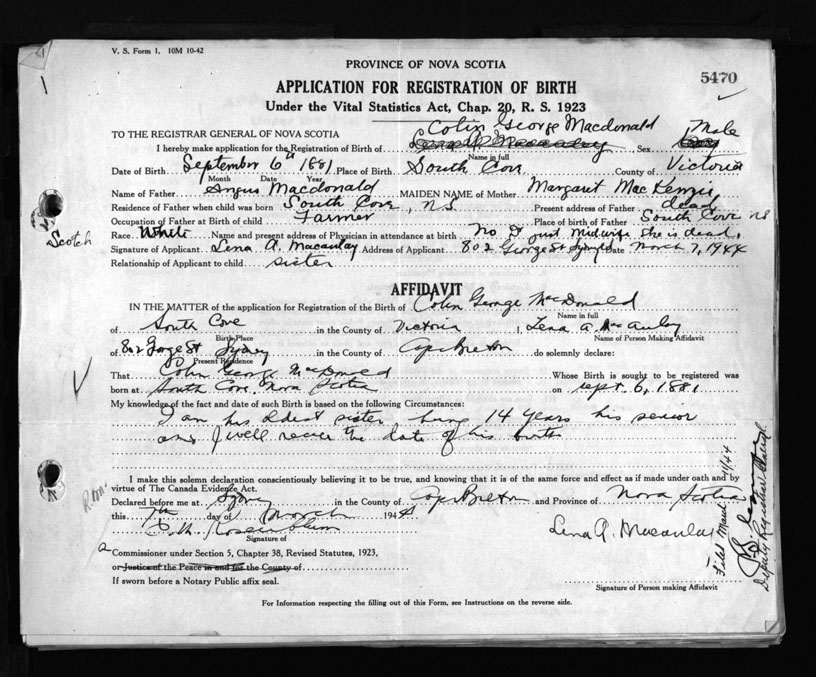 V. S. Form 1. 10M 10-42
PROVINCE OF NOVA SCOTIA
5470
APPLICATION FOR REGISTRATION OF BIRTH
Under the Vital Statistics Act, Chap. 20, R. S. 1923
Colin George Macdonald Male
TO THE REGISTRAR GENERAL OF NOVA SCOTIA
I hereby make application for the Registration of Birth of Lena A. Macaulay Sex
Name in full
Date of Birth September 6th 1881 Place of Birth South Cove County of Victoria
Month Date Year
Name of Father Angus Macdonald MAIDEN NAME of Mother Margaret MacKenzie
Residence of Father when child was born South Cove, N.S. Present address of Father dead
Occupation of Father at Birth of child Farmer Place of birth of Father South Cove NS
Scotch
Race White Name and present address of Physician in attendance at birth No Dr just Midwife She is dead.
Signature of Applicant Lena A. Macaulay Address of Applicant 802 George St Sydney Date March 7, 1944
Relationship of Applicant to child sister
AFFIDAVIT
IN THE MATTER of the application for Registration of the Birth of Colin George McDonald
Name in full
of South Cove in the County of Victoria I, Lena A. MacAulay
Birth Place Name of Person Making Affidavit
of 802 Gorge St Sydney in the County of Cape Breton do solemnly declare:
Present Residence
That Colin George McDonald Whose Birth is sought to be registered was
born at South Cove, Nova Scotia on Sept. 6, 1881
My knowledge of the fact and date of such Birth is based on the following Circumstances:
I am his oldest sister being 14 years his senior
and I well recall the date of his birth
I make this solemn declaration conscientiously believing it to be true, and knowing that it is of the same force and effect as if made under oath and by
virtue of The Canada Evidence Act.
Declared before me at Sydney in the County of Cape Breton and Province of Nova Scotia
this 7th day of March 1944
Lena A. Macaulay
Signature of
a Commissioner under Section 5, Chapter 38, Revised Statutes, 1923,
or Justice of the Peace in and for the County of
If sworn before a Notary Public affix seal.
Signature of Person making Affidavit
For Information respecting the filling out of this Form, see Instructions on the reverse side.
Filed March 11/44
Deputy Registrar General